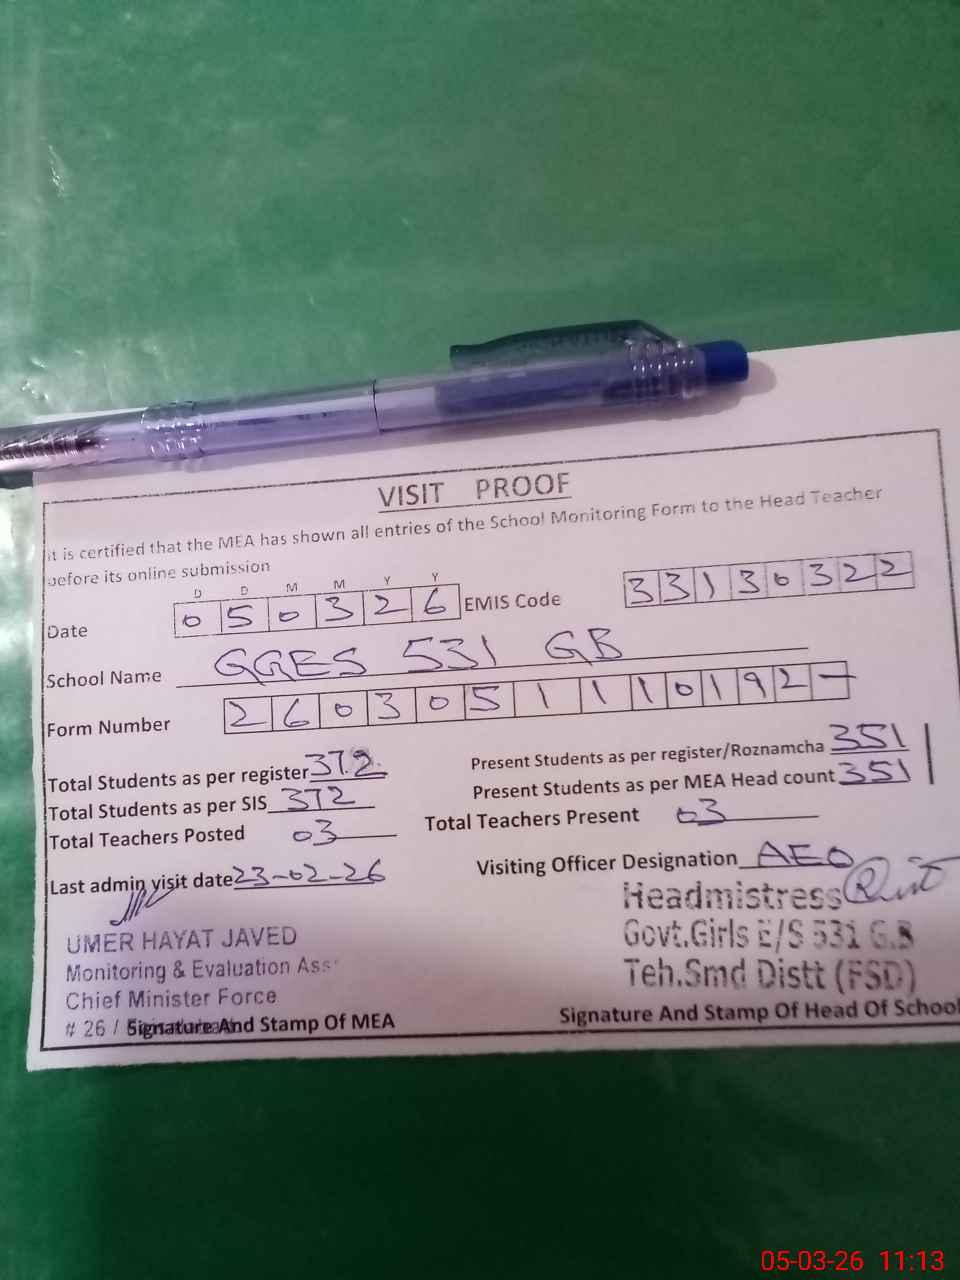 VISIT PROOF
it is certified that the MEA has shown all entries of the School Monitoring Form to the Head Teacher
before its online submission
D D M M Y Y
Date 050326 EMIS Code 33130322
School Name GGES 531 GB
Form Number 2603051110192-
Total Students as per register 372 Present Students as per register/Roznamcha 351
Total Students as per SIS 372 Present Students as per MEA Head count 351
Total Teachers Posted 03 Total Teachers Present 03
Last admin visit date 23-02-26 Visiting Officer Designation AEO
UMER HAYAT JAVED
Monitoring & Evaluation Ass
Chief Minister Force
# 26 /
Signature And Stamp Of MEA
Headmistress
Govt.Girls E/S 531 G.B
Teh.Smd Distt (FSD)
Signature And Stamp Of Head Of School
05-03-26 11:13